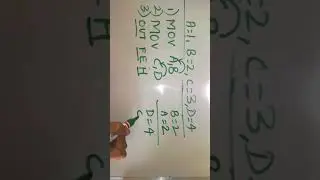 A=1, B=2, C=3, D=4
1) MOV A,B
2) MOV C,D
3) OUT FEH
B=2
A=2
D=4
C